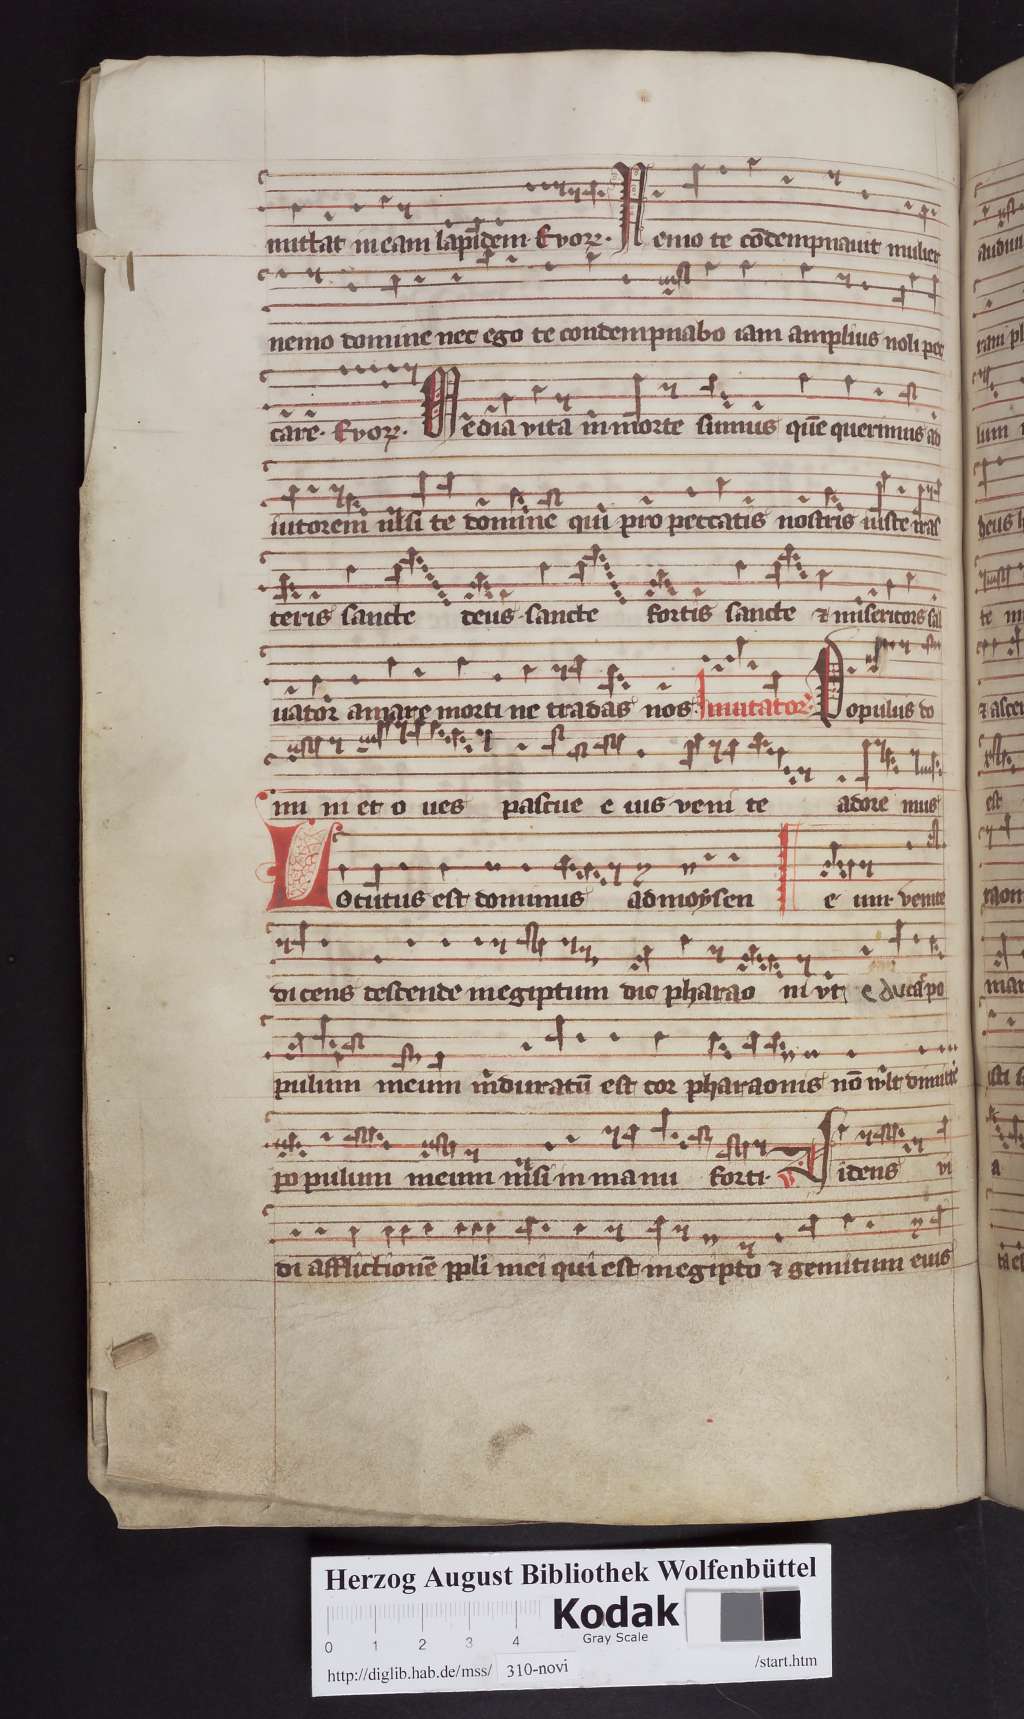 mittat in eam lapidem Evovę. Nemo te cōdempnauit mulier
nemo domine nec ego te condempnabo iam amplius noli pec
care. Evovę. Media vita in morte sumus quē querimus ad
iutorem nisi te domine qui pro peccatis nostris iuste iras
ceris sancte deus sancte fortis sancte & misericors sal
uator amare morti ne tradas nos. Inuitator Populus do
mi ni et o ues pascue e ius veni te adore mus
Locutus est dominus ad moysen e um. venite
dicens descende in egiptum dic pharao ni vt educat po
pulum meum induratū est cor pharaonis nō wlt dimittē
po pulum meum nisi in ma nu forti. V Videns vi
di afflictionē ppli mei qui est in egipto & gemitum eius
Herzog August Bibliothek Wolfenbüttel
Kodak
Gray Scale
0 1 2 3 4
http://diglib.hab.de/mss/ 310-novi /start.htm